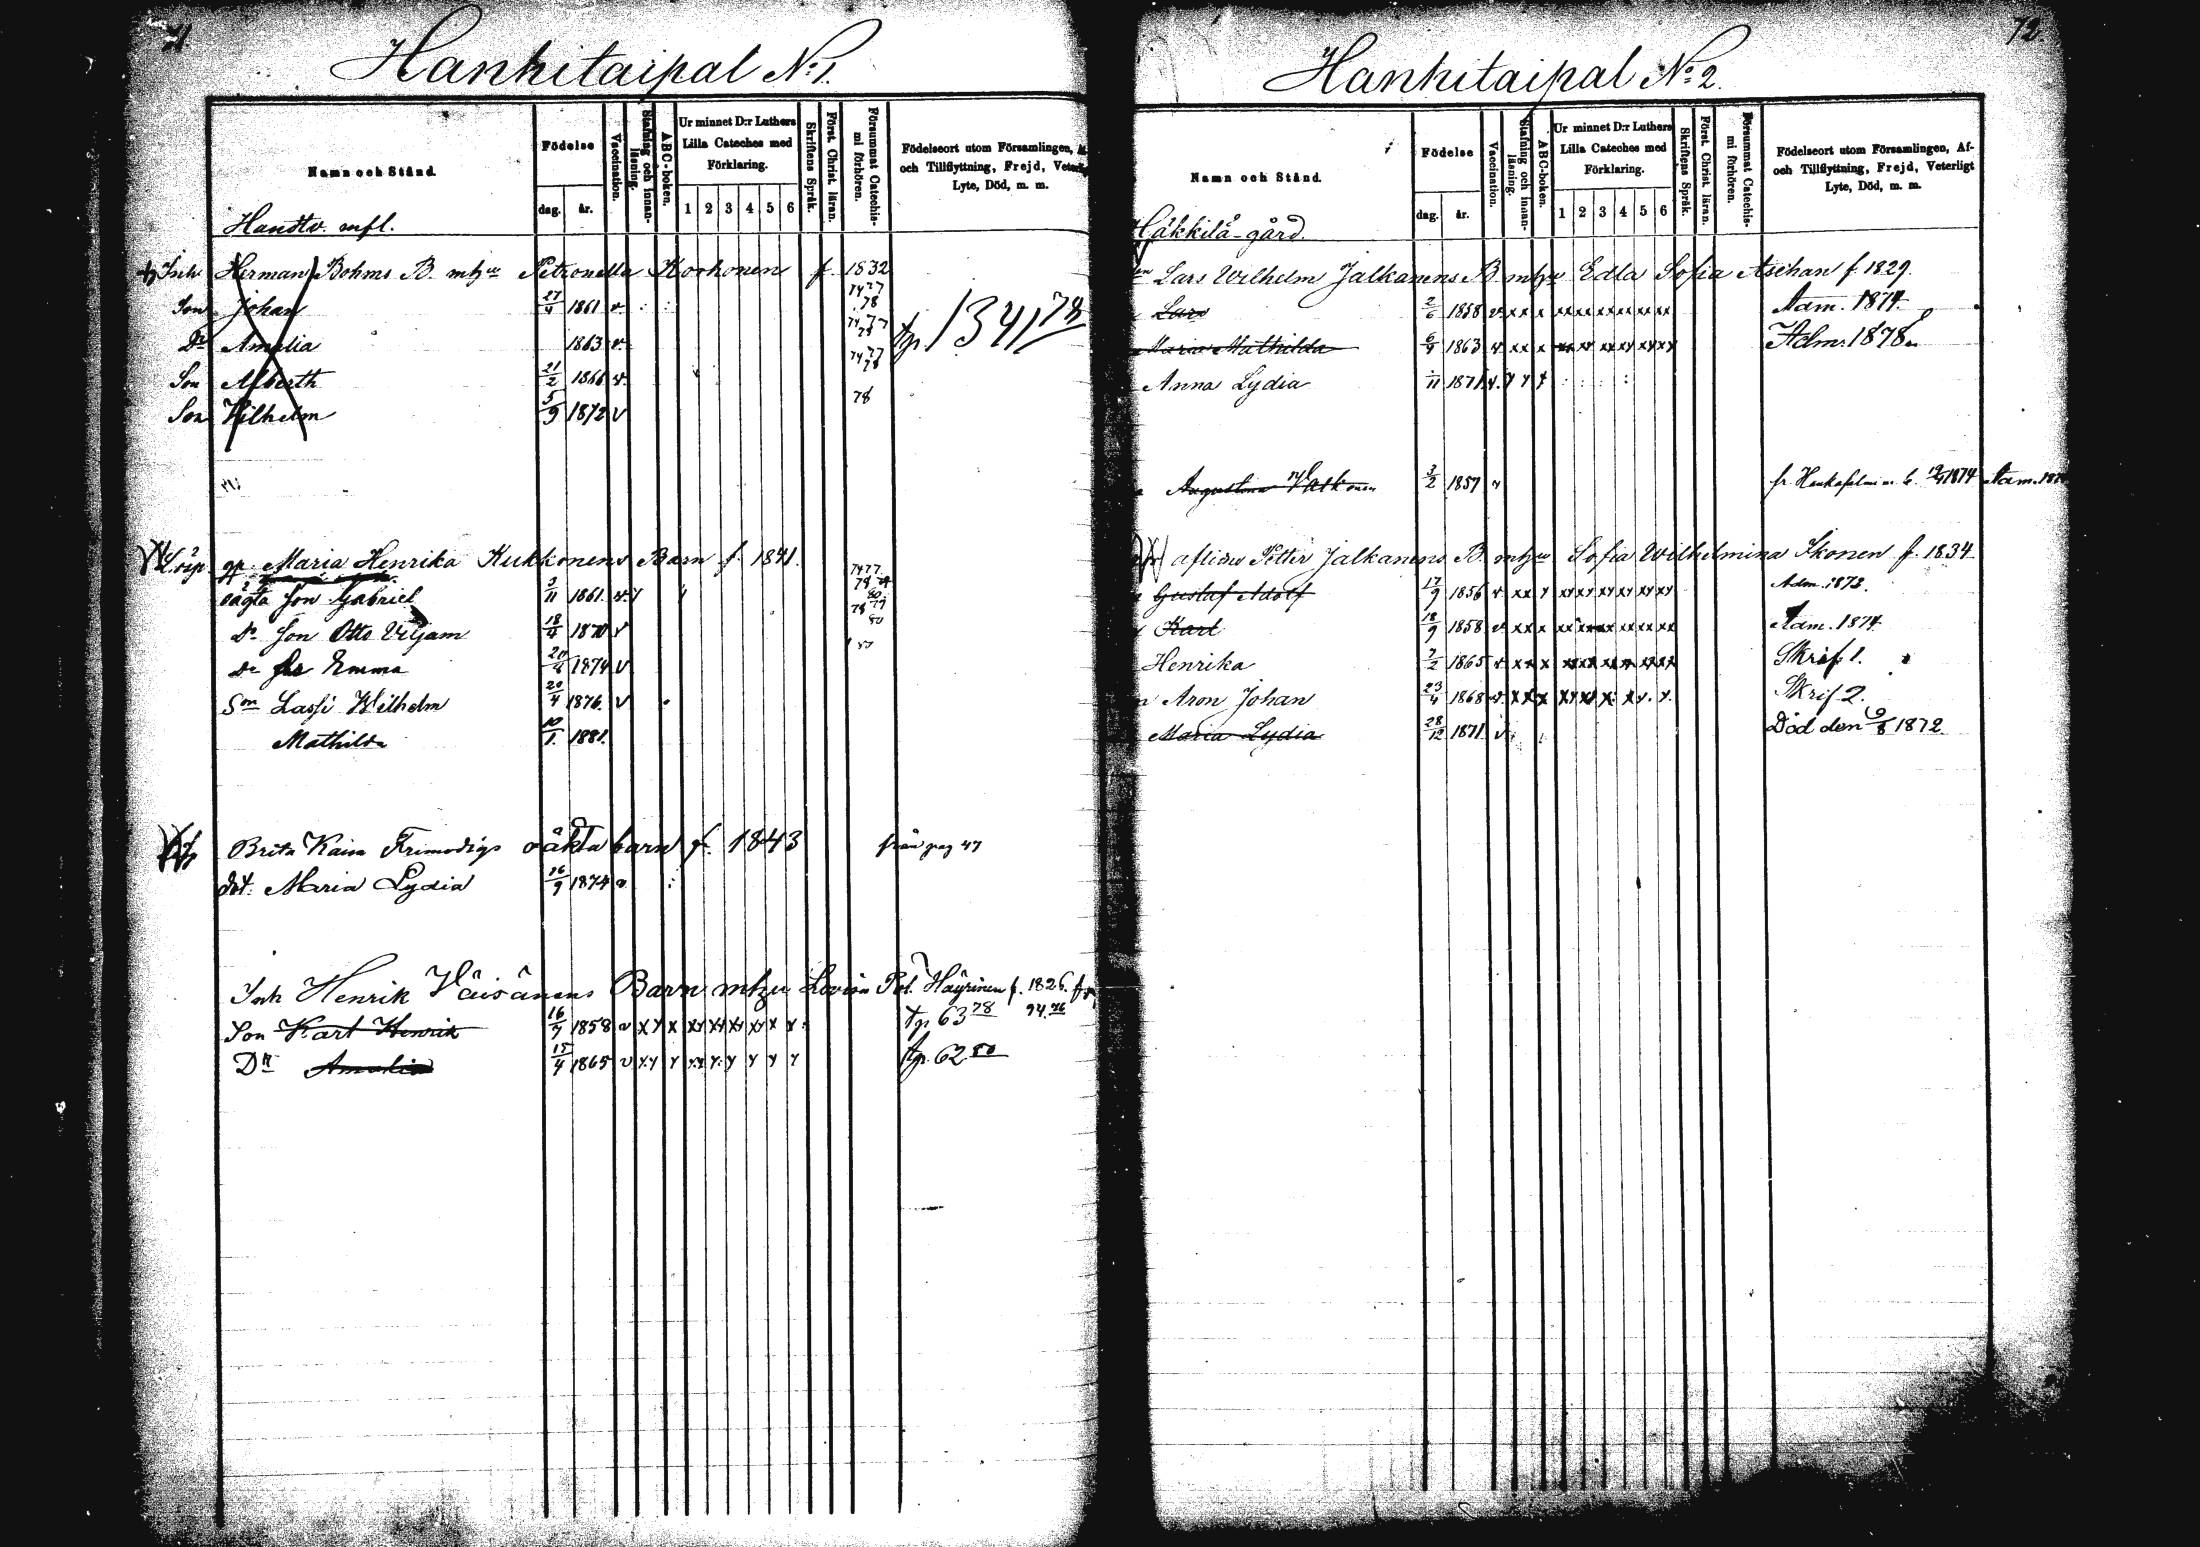 71.
Hankitaipal No. 1.
Namn och Stånd.
Födelse
dag. år.
Vaccination.
Stafning och innan-läsning.
ABC-boken.
Ur minnet D:r Luthers Lilla Cateches med Förklaring.
1 2 3 4 5 6
Skriftens Språk.
Först. Christ. läran.
Försummat Catechis-mi förhören.
Födelseort utom Församlingen,
och Tillflyttning, Frejd,
Lyte, Död, m. m.
Handtv. mfl.
Inh Herman Bohms B. mhu Petronella Korhonen f. 1832
Son Johan 27/4 1861 v 7477 78
Dr Amalia 1863 v 7477 78 tp. 1341 78
Son Alberth 21/2 1866 v 7477 78
Son Vilhelm 5/9 1872 v 78
Maria Henrika Kukkonens Barn f. 1841.
oägta Son Gabriel 3/11 1861. v 7477. 78
Dr Son Otto Viljam 18/4 1870 v 78 79 80
Dr Emma 20/4 1874 v
Son Lassi Wilhelm 20/4 1876. v
Mathilda 10/1. 1881.
Brita Kaisa Frimodigs oäkta barn f. 1843 från pag 47
dot. Maria Lydia 16/9 1874 v
Inh Henrik Väisänens Barn mhu Lovisa Häyrinen f. 1826.
Son Karl Henrik 16/7 1858 v x y x xy xy xy xy x x tp 63 78 94. 76
Dr Amalia 15/4 1865 v tp. 62 80
72.
Hankitaipal No. 2.
Namn och Stånd.
Födelse
dag. år.
Vaccination.
Stafning och innan-läsning.
ABC-boken.
Ur minnet D:r Luthers Lilla Cateches med Förklaring.
1 2 3 4 5 6
Skriftens Språk.
Först. Christ. läran.
Försummat Catechis-mi förhören.
Födelseort utom Församlingen, Af-
och Tillflyttning, Frejd, Veterligt
Lyte, Död, m. m.
Håkkilå-gård.
Lars Wilhelm Jalkanens B. mhu Edla Sofia Aschan f. 1829.
Lars 2/6 1858 v xx x xx xx xx xx xx xx Adm. 1874.
Maria Mathilda 6/9 1863 v xx x Adm. 1878
Anna Lydia /11 1871 v.
Augustina Valkonen 3/2 1857 v fr. 1874 Adm. 187
aflidne Petter Jalkanens B. mhu Sofia Wilhelmina Ikonen f. 1834
Gustaf Adolf 17/9 1856 v xx y xy xy xy xy xy xy Adm. 1873.
Karl 18/9 1858 v xx x Adm. 1874
Henrika 7/2 1865 v xx x Skrif 1.
Aron Johan 23/4 1868 v. xx x Skrif 2.
Maria Lydia 28/12 1871 v Död den 9/8 1872.